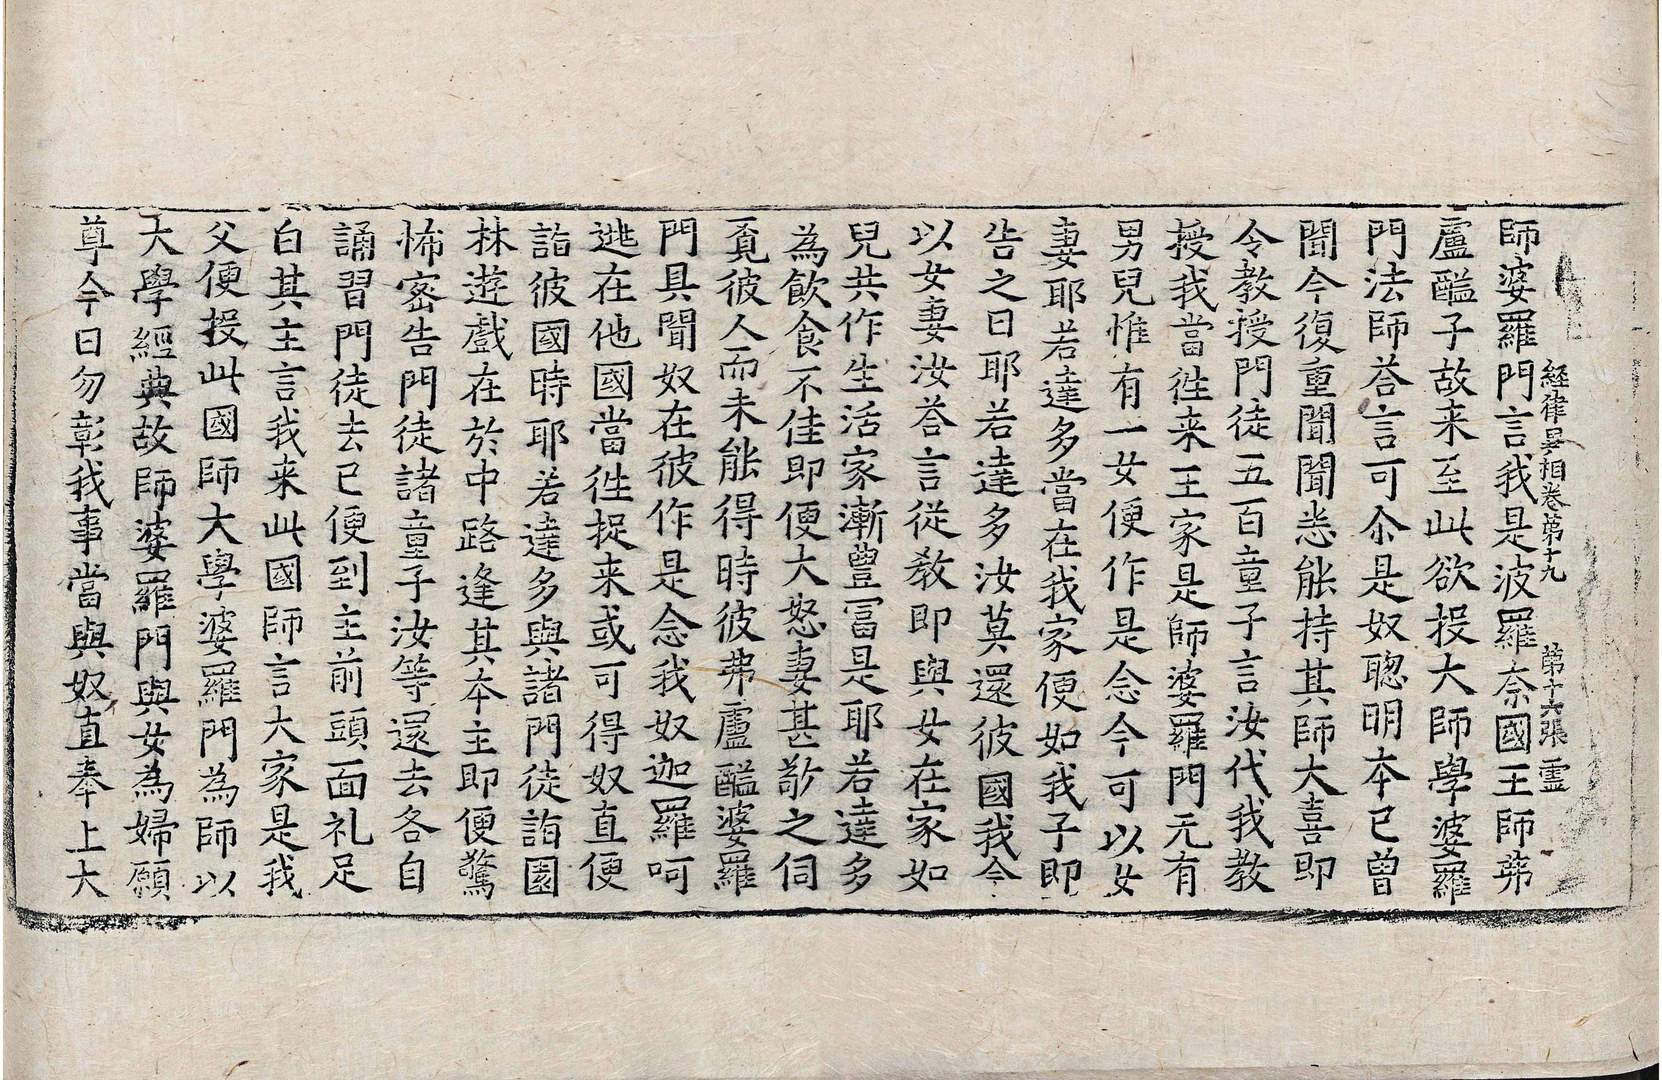 經律異相卷第十九 第十六張 靈
師婆羅門言我是波羅奈國王師弗
盧醯子故来至此欲投大師學婆羅
門法師荅言可尒是奴聰明本已曾
聞今復重聞聞悉能持其師大喜即
令教授門徒五百童子言汝代我教
授我當徃来王家是師婆羅門无有
男兒惟有一女便作是念今可以女
妻耶若達多當在我家便如我子即
告之曰耶若達多汝莫還彼國我今
以女妻汝荅言從教即與女在家如
兒共作生活家漸豊冨是耶若達多
為飲食不佳即便大怒妻甚敬之伺
覓彼人而未能得時彼弗盧醯婆羅
門具聞奴在彼作是念我奴迦羅呵
逃在他國當徃捉来或可得奴直便
詣彼國時耶若達多與諸門徒詣園
林遊戲在於中路逢其本主即便驚
怖密告門徒諸童子汝等還去各自
誦習門徒去已便到主前頭面礼足
白其主言我来此國師言大家是我
父便投此國師大學婆羅門為師以
大學經典故師婆羅門與女為婦願
尊今日勿彰我事當與奴直奉上大